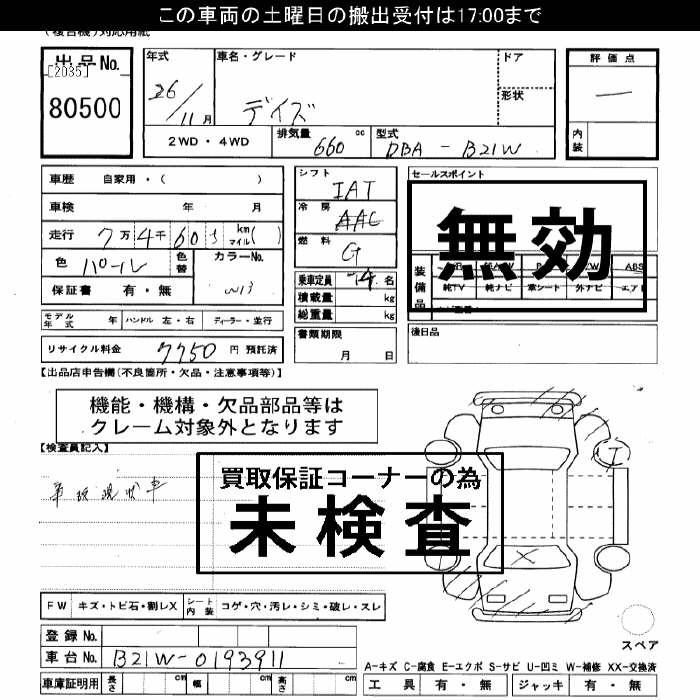 この車両の土曜日の搬出受付は17:00まで
(複合機)対応用紙
出品No. [2035] 80500
年式 26/11月
車名・グレード デイズ
ドア
形状
2WD・4WD
排気量 660 cc
型式 DBA-B21W
評価点 ―
内装
車歴 自家用・( )
車検 年 月
走行 7万4千60 km マイル( )
色 パール 色替 カラーNo.
保証書 有・無
モデル年式 年 ハンドル 左・右 ディーラー・並行
リサイクル料金 7750 円 預託済
シフト IAT
冷房 AAC
燃料 G
乗車定員 4名
積載量 kg
総重量 kg
書類期限
月 日
セールスポイント
無効
装備品
ABS
純TV 純ナビ 革シート 外ナビ エアB
後日品
【出品店申告欄(不良箇所・欠品・注意事項等)】
機能・機構・欠品部品等は
クレーム対象外となります
【検査員記入】
車板現状車
買取保証コーナーの為
未検査
FW キズ・トビ石・割レX シート内装 コゲ・穴・汚レ・シミ・破レ・スレ
登録No.
車台No. B21W-0193911
車庫証明用 長さ cm 幅 cm 高さ cm
スペア
A-キズ C-腐食 E-エクボ S-サビ U-凹ミ W-補修 XX-交換済
工具 有・無 ジャッキ 有・無